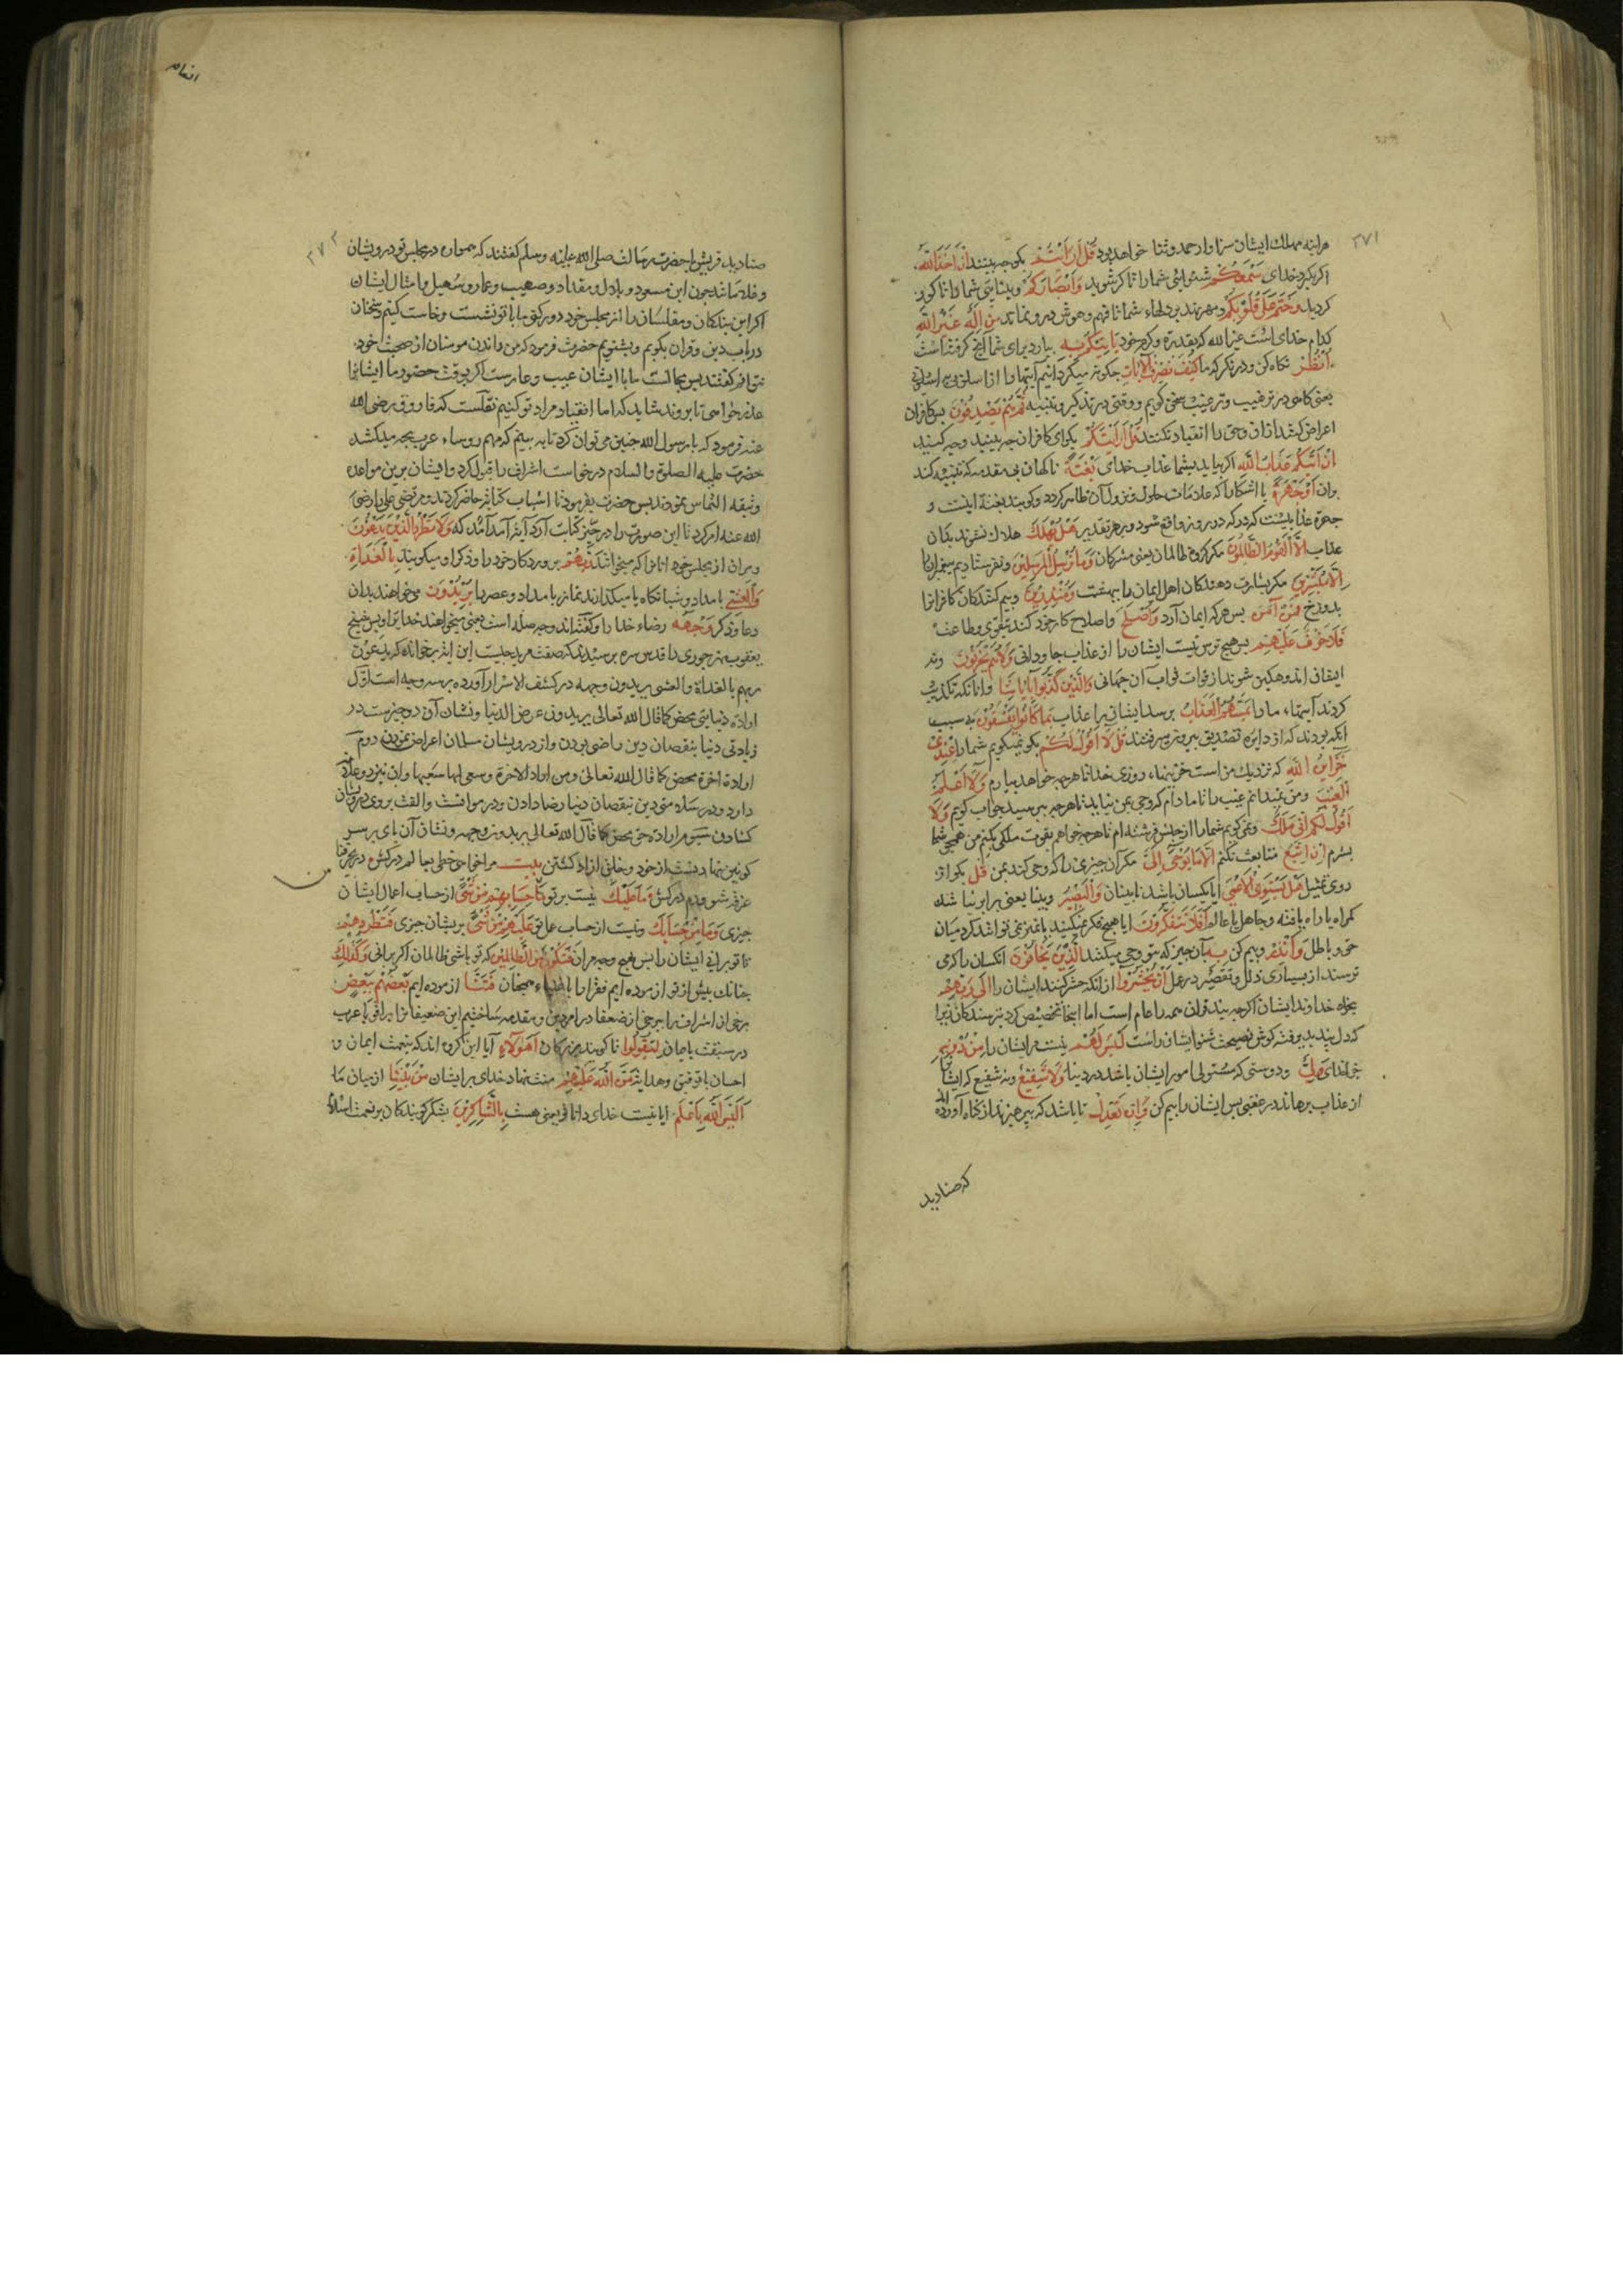 ۲۷۱
هراینه هملاك ایشان سزاوار حمد وثنا خواهد بود قُلْ اَرَاَیْتُمْ بکو چه بینند اِنْ اَخَذَاللّٰهُ
اکر بکیرد خدای سَمْعَکُمْ شنوایی شمارا تا کر شوید وَاَبْصَارَکُمْ وبینایی شمارا تا کور
کردید وَخَتَمَ عَلٰی قُلُوْبِکُمْ ومهر نهد بر دلهاء شما تا فهم وهوش در و نماند مَنْ اِلٰهٌ غَیْرُاللّٰهِ
کدام خدای است غیر الله که بقدرة وکرم خود یَاْتِیْکُمْ بِه بیارد برای شما آنچ کرفته است
اُنْظُرْ نکاه کن ودر نکر که ما کَیْفَ نُصَرِّفُ الْاٰیَاتِ چکونه میکردانیم آیتهارا از اسلوبی به اسلوبی
یعنی کاهی در ترغیب وترهیب سخن کویم و وقتی در تذکیر وتنبیه ثُمَّ هُمْ یَصْدِفُوْنَ پس کافران
اعراض کنند ازان وحق را انقیاد نکنند قُلْ اَرَاَیْتَکُمْ بکو ای کافران چه بینید وچه کنید
اِنْ اَتٰیکُمْ عَذَابُ اللّٰهِ اکر بیاید بشما عذاب خدای بَغْتَةً ناکهان بی مقدمه که تنبیه کند
بران اَوْ جَهْرَةً یا اشکارا که علامات حلول ونزول آن ظاهر کردد وکویند بغتة اینست و
جهرة عذابیست که در روز واقع شود وبر هر تقدیر هَلْ یُهْلَكُ هلاك نشوند بدان
عذاب اِلَّا الْقَوْمُ الظَّالِمُوْنَ مکر کروه ظالمان یعنی مشرکان وَمَا نُرْسِلُ الْمُرْسَلِیْنَ ونفرستادیم پیغمبرانرا
اِلَّا مُبَشِّرِیْنَ مکر بشارت دهندکان اهل ایمان را ببهشت وَمُنْذِرِیْنَ وبیم کنندکان کافرانرا
بدوزخ فَمَنْ اٰمَنَ پس هر که ایمان آرد وَاَصْلَحَ واصلاح کار خود کند بتقوی وطاعت
فَلَا خَوْفٌ عَلَیْهِمْ پس هیچ ترس نیست ایشان را از عذاب جاودانی وَلَا هُمْ یَحْزَنُوْنَ ونه
ایشان اندوهکین شوند از فوات ثواب آن جهانی وَالَّذِیْنَ کَذَّبُوْا بِاٰیَاتِنَا وانانکه تکذیب
کردند آیتهاء مارا یَمَسُّهُمُ الْعَذَابُ برسد ایشان را عذاب بِمَا کَانُوْا یَفْسُقُوْنَ به سبب
انکه بودند که از دایره تصدیق بیرون می رفتند قُلْ لَا اَقُوْلُ لَکُمْ بکو نمیکویم شمارا عِنْدِیْ
خَزَآئِنُ اللّٰهِ که نزدیك من است خزینهاء روزی خدا تا هرچه خواهد بیارم وَلَا اَعْلَمُ
الْغَیْبَ ومن نمیدانم غیب را تا مادام که وحی بمن نیاید تا هرچه بپرسید جواب کویم وَلَا
اَقُوْلُ لَکُمْ اِنِّیْ مَلَكٌ ونمی کویم شمارا از جنس فرشته ام تا هرچه خواهم بقوت ملکی بکنم من همچو شما
بشرم اِنْ اَتَّبِعُ متابعت نکنم اِلَّا مَا یُوْحٰی اِلَیَّ مکر آن چیزی را که وحی کنند بمن قُلْ بکو از
روی تمثیل هَلْ یَسْتَوِی الْاَعْمٰی ایا یکسان باشد نابینان وَالْبَصِیْرُ وبینا یعنی برابر نباشد
کمراه با راه یافته وجاهل با عالم اَفَلَا تَتَفَکَّرُوْنَ ایا هیچ فکر نمیکنید تا تمیز توانند کرد میان
حق وباطل وَاَنْذِرْ وبیم کن بِهِ بآن چیز که بتو وحی میکنند الَّذِیْنَ یَخَافُوْنَ انکسان را که می
ترسند از بسیاری ذلل وتقصیر در عمل اَنْ یُحْشَرُوْا از انکه حشر کنند ایشان را اِلٰی رَبِّهِمْ
بجزاء خداوند ایشان اکرچه بیند قران همه را عام است اما اینجا تخصیص کرد بترسندکان زیرا
که دل پند پذیر وفته کوش نصیحت شنوا ایشان راست لَیْسَ لَهُمْ نیست مر ایشان را مِنْ دُوْنِهِ
بجز خدای وَلِیٌّ ودوستی که متولی امور ایشان باشد در دنیا وَلَا شَفِیْعٌ ونه شفیع که ایشانرا
از عذاب برهاند در عقبی پس ایشان را بیم کن لَعَلَّهُمْ یَتَّقُوْنَ تا باشد که بپرهیزند از کناه آورده اند
که صنادید
انعام
۲۷۲
صنادید قریش با حضرت رسالت صلی الله علیه وسلم کفتند که همواره در مجلس تو درویشان
و فقرا مانند چون ابن مسعود و بلال ومقداد وصهیب وعمار وسهیل وامثال ایشان
اکر این بندکان ومفلسان را از مجلس خود دور کنی ما با تو نشست وخاست کنیم وسخنان
در باب دین وقران بکویم وبشنویم حضرت فرمود که من راندن مومنان از صحبت خود
نتوانم کفتند پس مجالست ما با ایشان عیب وعارست اکر بوقت حضور ما ایشانرا
عذر خواهی تا بروند شاید که ما انقیاد مراد تو کنیم نقلست که فاروق رضی الله
عنه فرمود که یا رسول الله چنین می توان کرد تا ببینیم که مهم روساء عرب بچه میکشد
حضرت علیه الصلوة والسلام درخواست اشراف را قبول کرد وایشان برین مواعده
وثیقه التماس نمودند پس حضرت بفرمود تا اسباب کتابة حاضر کردند ومرتضی علی را رضی
الله عنه امر کرد تا این صورت را در حیز کتابت آرد آیة آمد که وَلَا تَطْرُدِ الَّذِیْنَ یَدْعُوْنَ
ومران از مجلس خود انانرا که میخوانند رَبَّهُمْ پروردکار خود را وذکر او میکویند بِالْغَدٰوةِ
وَالْعَشِیِّ بامداد وشبانکاه یا میکذارند نماز بامداد وعصر را یُرِیْدُوْنَ می خواهند بدان
دعا وذکر وَجْهَهُ رضاء خدا را وکفته اند وجه صله است یعنی میخواهند خدایرا وبس شیخ
یعقوب نهرجوری را قدس سره پرسیدند که صفت مرید چیست این ایة برخواند که یدعون
ربهم بالغداة والعشی یریدون وجهه در کشف الاسرار آورده بر سه وجه است اول
ارادة دنیایی محض کما قال الله تعالی یریدون عرض الدنیا ونشان آن دو چیزست در
زیادتی دنیا بنقصان دین راضی بودن واز درویشان مسلمان اعراض نمودن دوم
ارادة اخرة محض کما قال الله تعالی ومن اراد الاخرة وسعی لها سعیها وان نیز دو علامت
دارد در سلامتی دین بنقصان دنیا رضا دادن ودر موانست والفت بروی درویشان
کشادن سیوم ارادة حق محض کما قال الله تعالی یریدون وجهه ونشان آن پای بر سر
کونین نهادنست از خود وخلق ازاد کشتن بیت مراخواهی خطی بعالم درکش در بحر فنا
غرقه شو ودم درکش مَا عَلَیْكَ نیست بر تو مِنْ حِسَابِهِمْ مِنْ شَیْءٍ از حساب اعمال ایشان
چیزی وَمَا مِنْ حِسَابِكَ ونیست از حساب عمل تو عَلَیْهِمْ مِنْ شَیْءٍ بر یشان چیزی فَتَطْرُدَهُمْ
تا تو برانی ایشان را پس بهیچ وجه مران فَتَکُوْنَ مِنَ الظَّالِمِیْنَ که تو باشی از ظالمان اکر برانی وَکَذٰلِكَ
چنانك پیش از تو ازموده ایم فقرا را باغنیاء همچنان فَتَنَّا ازموده ایم بَعْضَهُمْ بِبَعْضٍ
برخی از اشراف را ببرخی از ضعفا در امر دین ومقدم ساختیم این ضعیفانرا بر اشراف عرب
در سبقت بایمان لِیَقُوْلُوْا تا کویند بزرکان اَهٰؤُلَاءِ آیا این کروه اند که بنعمت ایمان و
احسان باتوفیق وهدایة مَنَّ اللّٰهُ عَلَیْهِمْ منت نهاد خدای بر ایشان مِنْ بَیْنِنَا از میان ما
اَلَیْسَ اللّٰهُ بِاَعْلَمَ ایا نیست خدای داناتر یعنی هست بِالشَّاکِرِیْنَ بشکر کویندکان بر نعمت اسلام